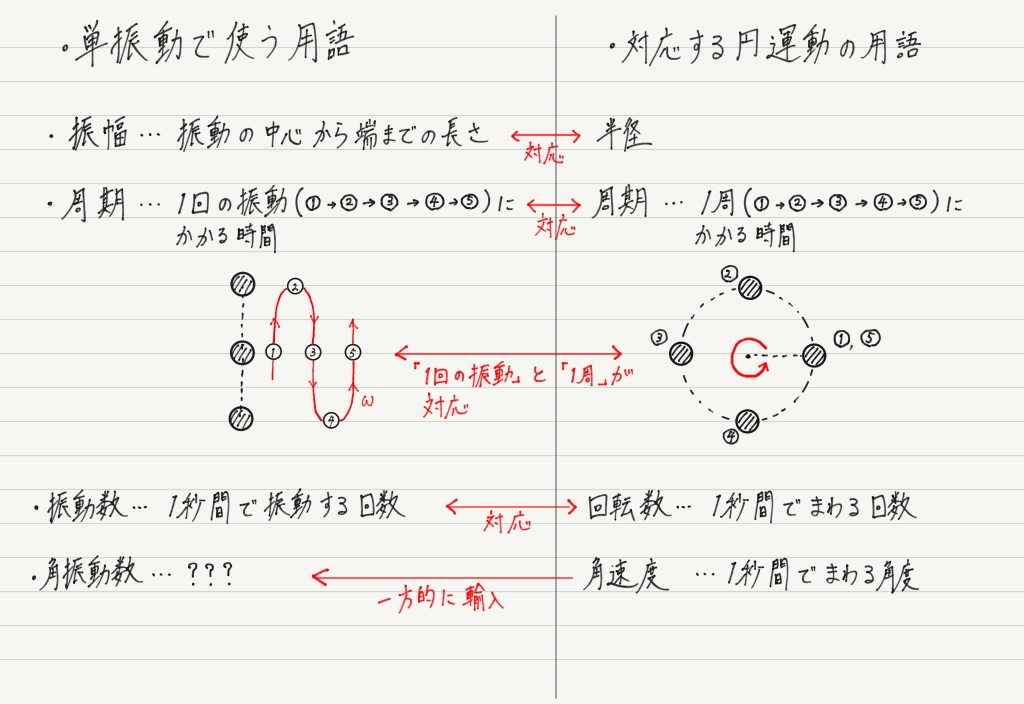 ・単振動で使う用語
・対応する円運動の用語
・振幅…振動の中心から端までの長さ
対応
半径
・周期…1回の振動(①→②→③→④→⑤)に
かかる時間
対応
周期…1周(①→②→③→④→⑤)に
かかる時間
②
① ③ ⑤
④
ω
「1回の振動」と「1周」が
対応
②
③
①, ⑤
④
・振動数…1秒間で振動する回数
対応
回転数…1秒間でまわる回数
・角振動数…???
一方的に輸入
角速度…1秒間でまわる角度